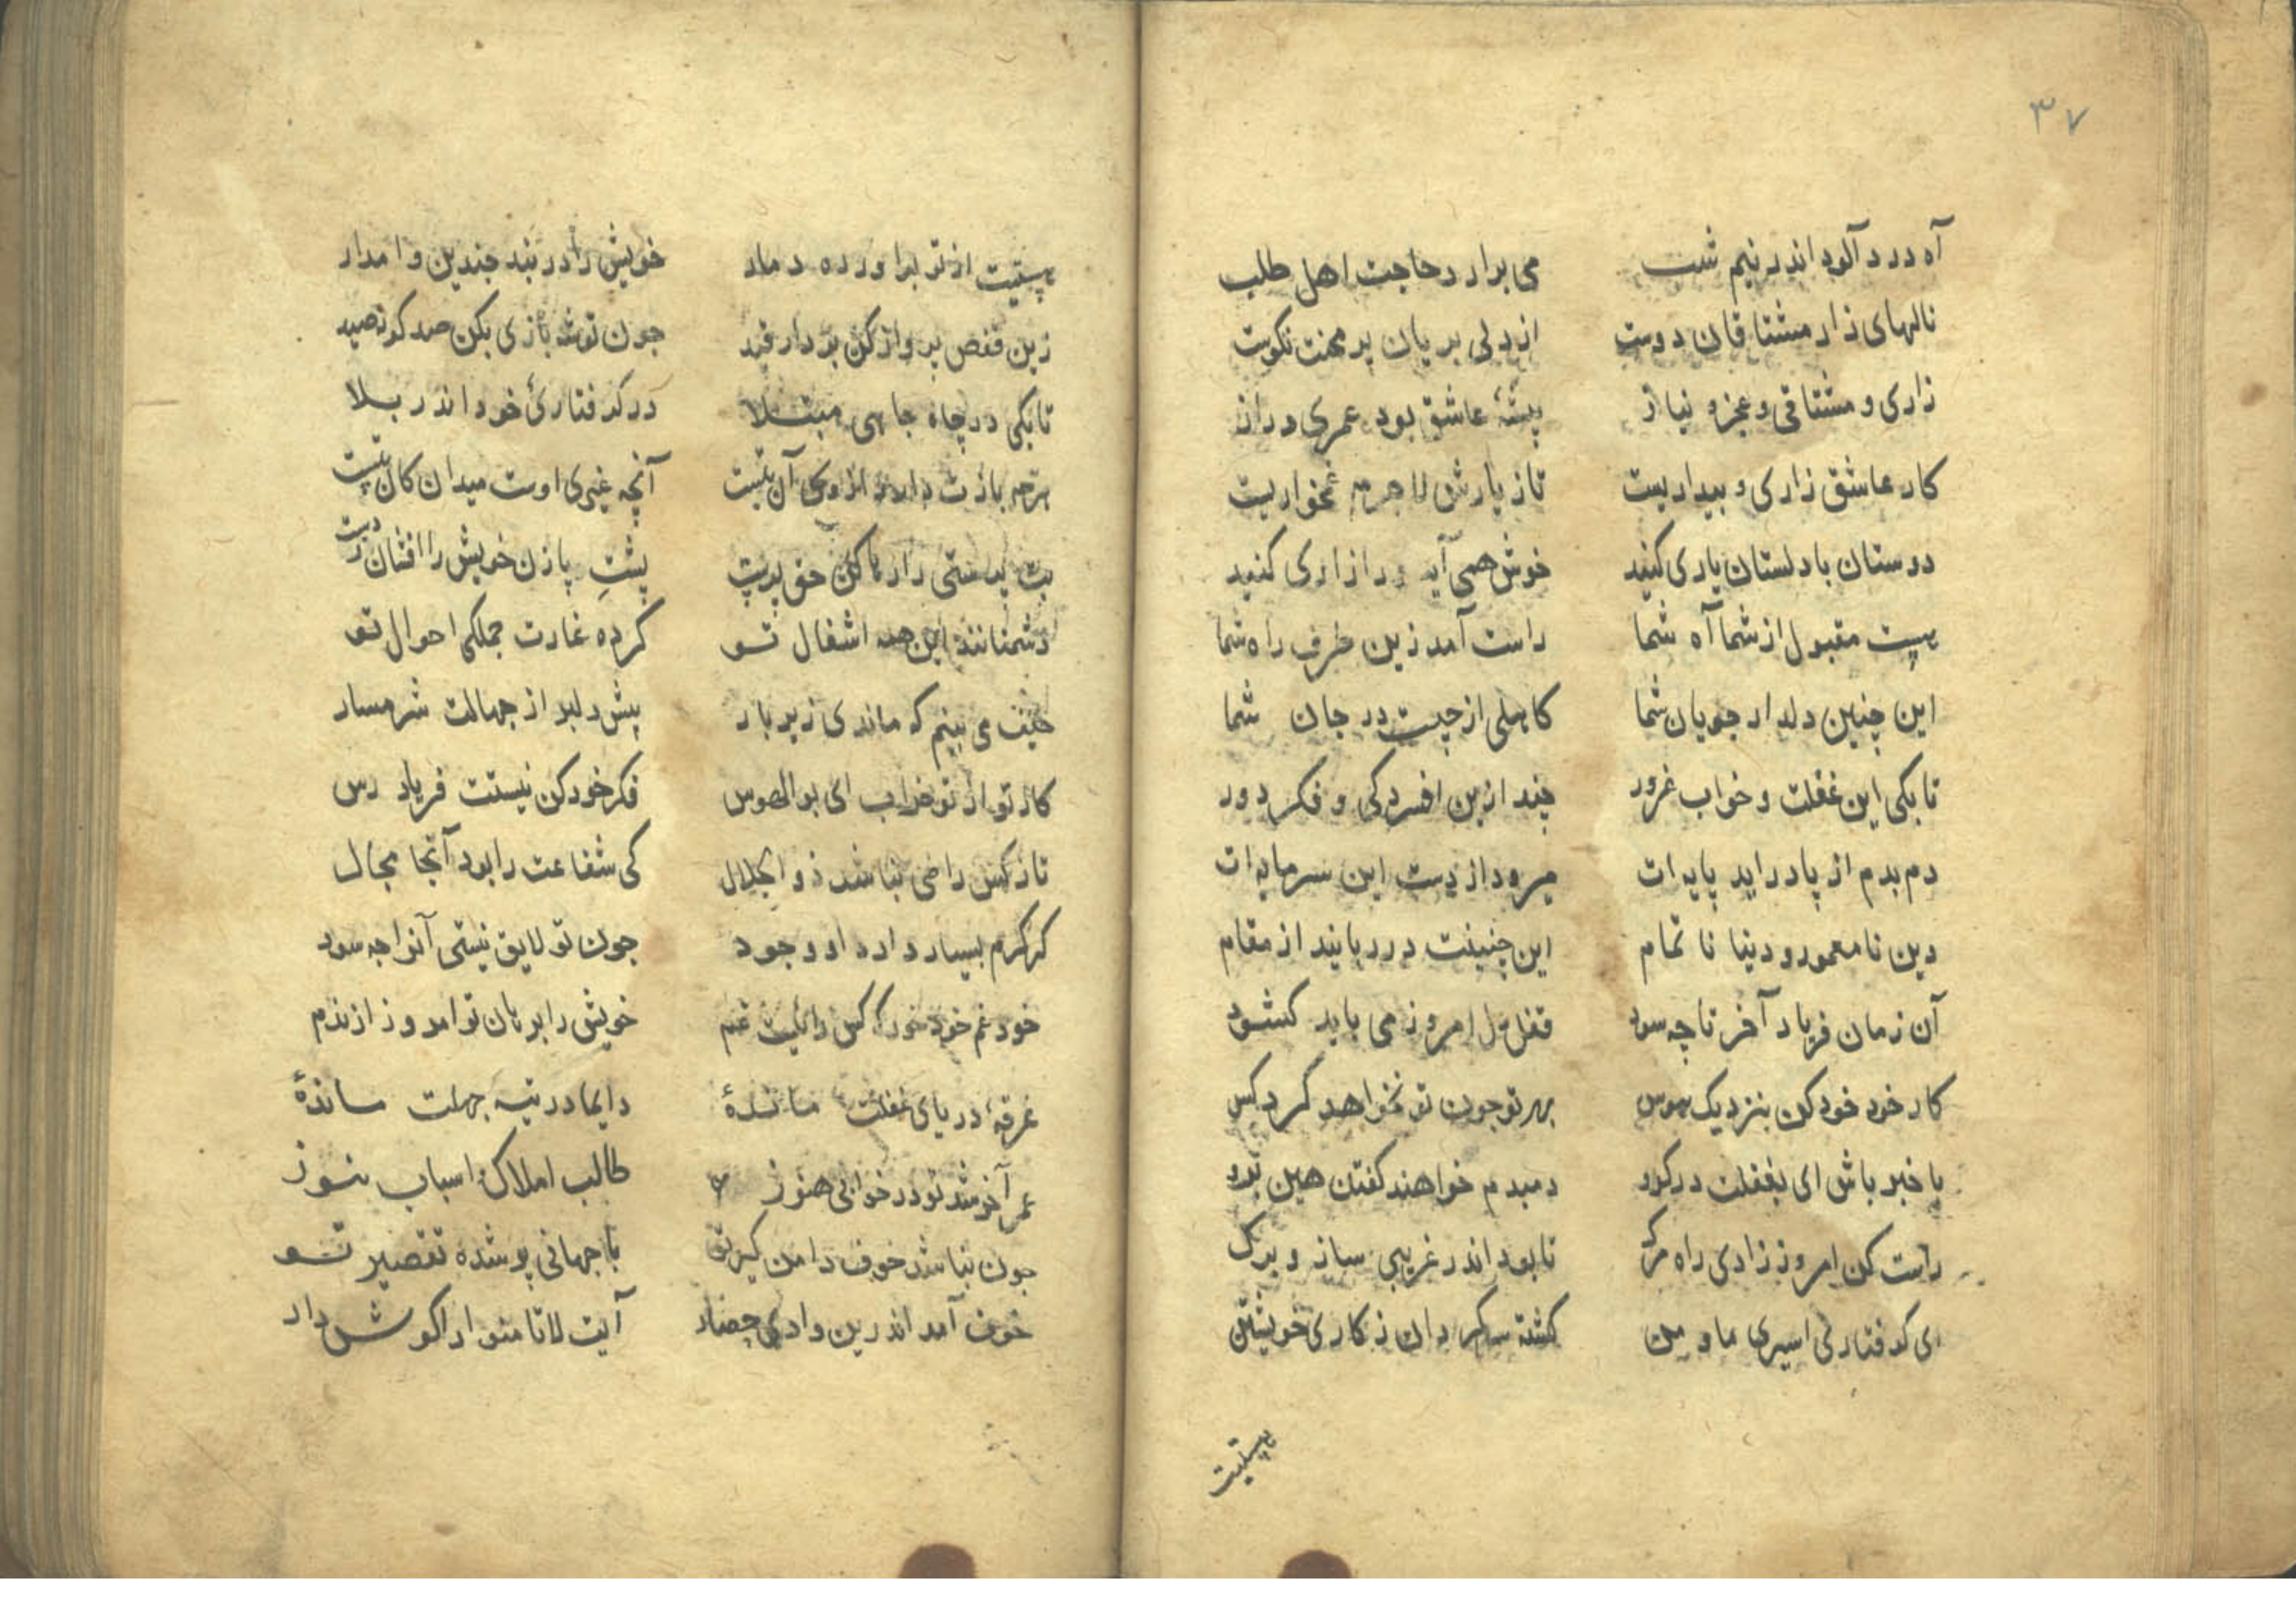 ۳۷
آه درد آلود اندر نیم شب می برارد حاجت اهل طلب
نالهای زار مشتاقان دوست از دلی بریان پر محنت نکوست
زاری و مشتاقی و عجز و نیاز پیشهٔ عاشق بود عمری دراز
کار عاشق زاری و بیداریست تاز یارش لاجرم غمخواریست
دوستان با دلستان یاری کنید خوش همی آید ورا زاری کنید
هست مقبول از شما آه شما راست آمد زین طرف راه شما
این چنین دلدار جویان شما کاهلی از چیست در جان شما
تا بکی این غفلت و خواب غرور چند ازین افسردکی و فکر دور
دم بدم از پا دراید پایه ات میرود از دست این سرمایه ات
دین نامعمور و دنیا نا تمام این چنینت در ربایند از مقام
آن زمان فریاد آخر تا چه سود قفل دل امروز می باید کشود
کار خود خود کن بنزدیک هوس بهر تو جون تو نخواهد کرد کس
با خبر باش ای بغفلت در کرو دمبدم خواهند کفتن هین برو
راست کن امروز زادی راه مرک تا بود اندر غریبی ساز و برک
ای کرفتار اسیری ما و من کشته سرکردان ز کاری خویشتن
هستیت
هستیت از تو براورده دمار خویش را در بند جندین وا مدار
زین قفص پرواز کن بردار قید جون تو شه بازی بکن صد کونه صید
تا بکی در چاه جاهی مبتلا در کرفتاریٔ خود اندر بلا
هرچه بازت دارد از وی آن بتست آنچه غیری اوست میدان کان بتست
بت پرستی را رها کن حق پرست پشت پا زن خویش را افشان دست
دشمنانند این همه اشغال تو کرده غارت جملکی احوال تو
حیف می بینم که ماندی زیر بار پیش دلبر از جهالت شرمسار
کار تو از تو خراب ای بوالهوس فکر خود کن نیستت فریاد رس
تاز کس راضی نباشد ذو الجلال کی شفاعت را بود آنجا مجال
کر کرم بسیار دارد او وجود جون تو لایق نیستی آنرا جه سود
خود غم خود خور که کس را نیست غم خویش را برهان تو امروز از ندم
غرقهٔ دریای غفلت ماندهٔ دایما در تیه جهلت ماندهٔ
عمر آخر شد تو در خوابی هنوز طالب املاک و اسباب هنوز
جون نباشد خوف دامن کیر تو با جهانی پر شده تقصیر تو
خوف آمد اندرین وادی حصار آیت لاتامنوا را کوش دار